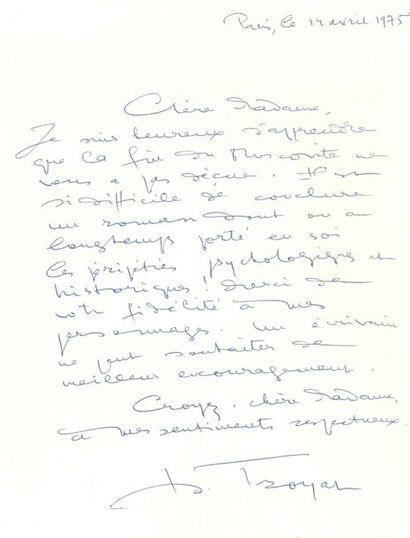 Paris, le 14 avril 1975
Chère Madame,
Je suis heureux d'apprendre
que la fin du Moscovite ne
vous a pas déçue. Il est
si difficile de conclure
un roman dont on a
longtemps porté en soi
les péripéties psychologiques et
historiques ! Merci de
votre fidélité à mes
personnages. Un écrivain
ne peut souhaiter de
meilleur encouragement.
Croyez, chère Madame,
à mes sentiments respectueux.
H. Troyat